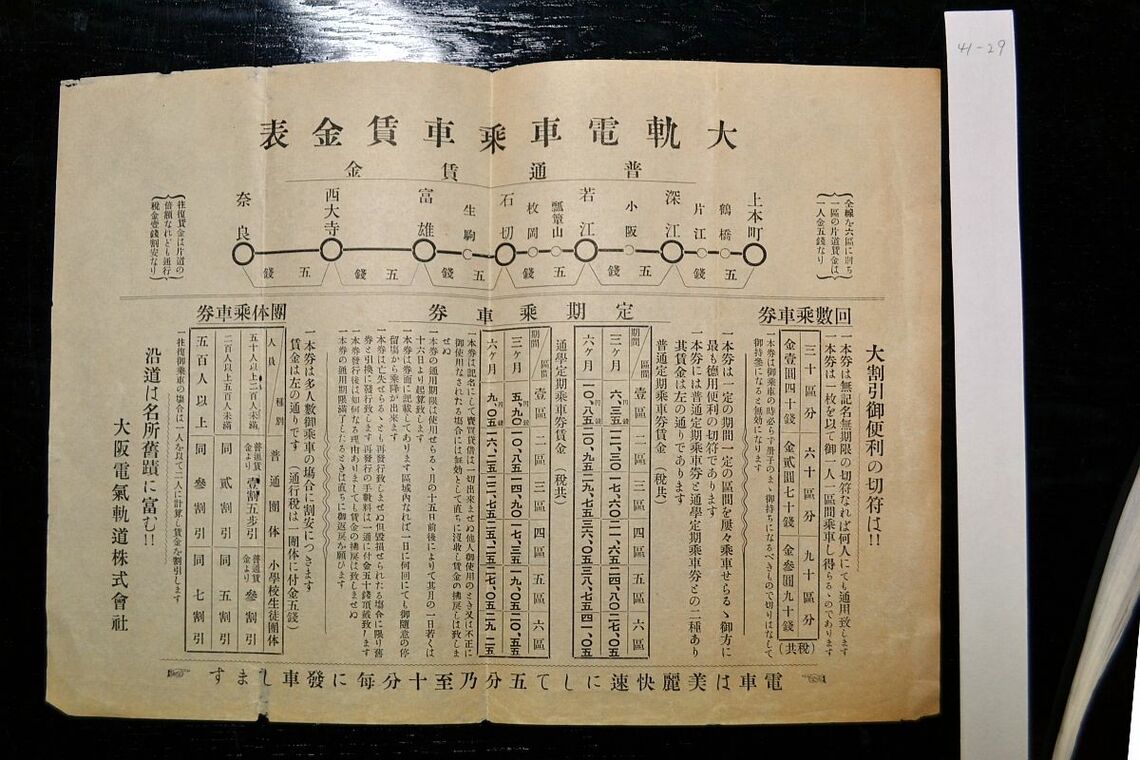 大軌電車乘車賃金表
普通賃金
全線を六區に割ち
一區の片道賃金は
一人金五錢なり
上本町
鶴橋
片江
深江
小阪
若江
瓢簞山
枚岡
石切
生駒
富雄
西大寺
奈良
五錢
五錢
五錢
五錢
五錢
五錢
往復賃金は片道の
倍額なれども通行
稅金壹錢割安なり
大割引御便利の切符は!!
回數乘車券
一本券は無記名無期限の切符なれば何人にても通用致します
一本券は一枚を以て御一人一區間乘車し得らるゝのであります
三十區分 六十區分 九十區分
金壹圓四十錢 金貳圓七十錢 金叁圓九十錢
(稅共)
一本券は御乘車の時必らず册子のまゝ御持ちになるべきもので切りはなして
御持參になると無効になります
定期乘車券
一本券は一定の期間一定の區間を屢々乘車せらるゝ御方に
最も德用便利の切符であります
一本券には普通定期乘車券と通學定期乘車券との二種あり
其賃金は左の通りであります
普通定期乘車券賃金 (稅共)
期間 區間 壹區 二區 三區 四區 五區 六區
三ヶ月 六、三五 一二、三〇 一七、六〇 二一、六五 二四、八〇 二七、〇五
六ヶ月 一〇、八五 二〇、九五 二九、七五 三六、〇五 三八、七五 四一、〇五
通學定期乘車券賃金 (稅共)
期間 區間 壹區 二區 三區 四區 五區 六區
三ヶ月 五、九〇 一〇、八五 一四、九〇 一七、三五 一九、〇五 二〇、五五
六ヶ月 九、〇五 一六、二五 二三、七五 二五、二五 二七、〇五 二九、二五
一本券は記名にして賣買貸借は一切出來ませぬ他人御使用のとき又は不正に
御使用なされたる場合には無効として直ちに沒收し賃金の拂戾しは致しま
せぬ
一本券の通用期限は使用せらるゝ月の十五日前後によりて其月の一日若くは
十六日より起算致します
一本券は券面に記載してあります區域內なれば一日に何回にても御隨意の停
留場から乘降が出來ます
一本券は亡失せらるゝとも再發行致しませぬ但毀損せられたる場合に限り舊
券と引換に發行致します再發行の手數料は一通に付金五十錢頂戴致します
一本券發行後は如何なる理由ありましても賃金の拂戾は致しませぬ
一本券の通用期限滿了したるときは直ちに御返戾を願ひます
團体乘車券
一本券は多人數御乘車の場合に割安につきます
賃金は左の通りです (通行稅は一團体に付金五錢)
人員 種別 普通團体 小學校生徒團体
五十人以上二百人未滿 普通賃金より 壹割五步引 普通賃金より 參割引
二百人以上五百人未滿 同 貳割引 同 五割引
五百人以上 同 參割引 同 七割引
一往復御乘車の場合は一人を以て二人に計算し賃金を割引します
沿道は名所舊蹟に富む!!
大阪電氣軌道株式會社
電車は美麗快速にして五分乃至十分每に發車します
41-29